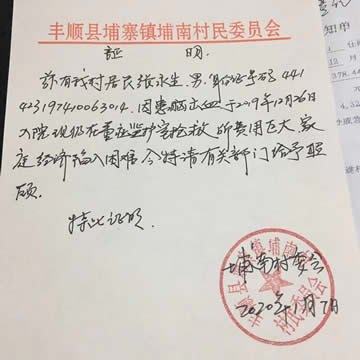 丰顺县埔寨镇埔南村民委员会
证 明
兹有我村居民张永生,男,身份证号码441
423197410063014,因患脑出血于2019年12月26日
入院现仍在重症监护室抢救,所费用巨大,家
庭经济陷入困难,今特请有关部门给予照
顾。
特此证明
埔南村委会
2020年1月7日
丰顺县埔寨镇埔南村民委员会
知单
12月
378.4